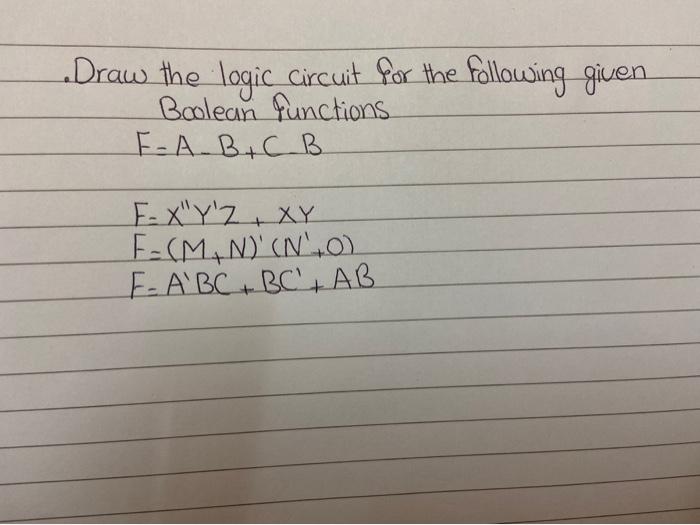 .Draw the logic circuit for the following given
Boolean functions
F=A-B+C-B
F=X"Y'Z + XY
F=(M+N)'(N'+O)
F=A'BC + BC' + AB